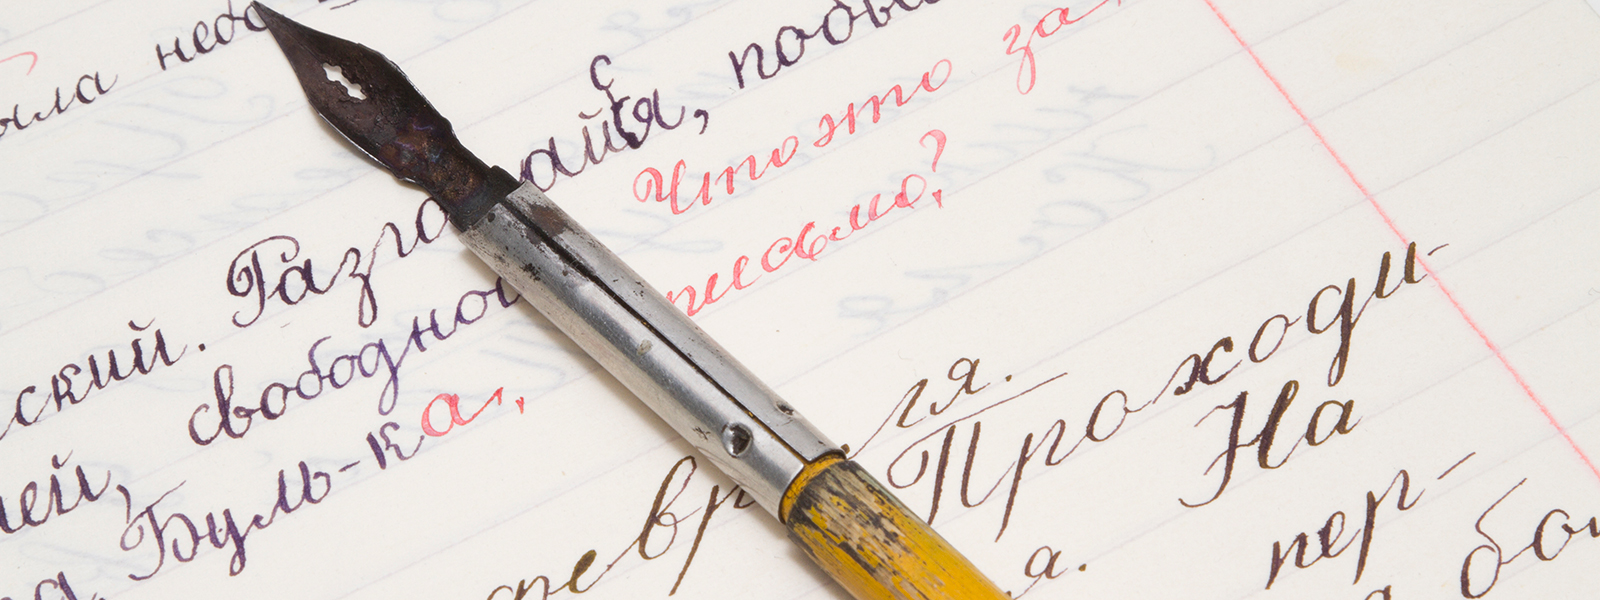 ыла небо
ский. Разго айся, подъ
Что это за
письмо?
лей, свободно
Буль-ка,
февр ля.
Проходи-
На
я. пер-
а бо